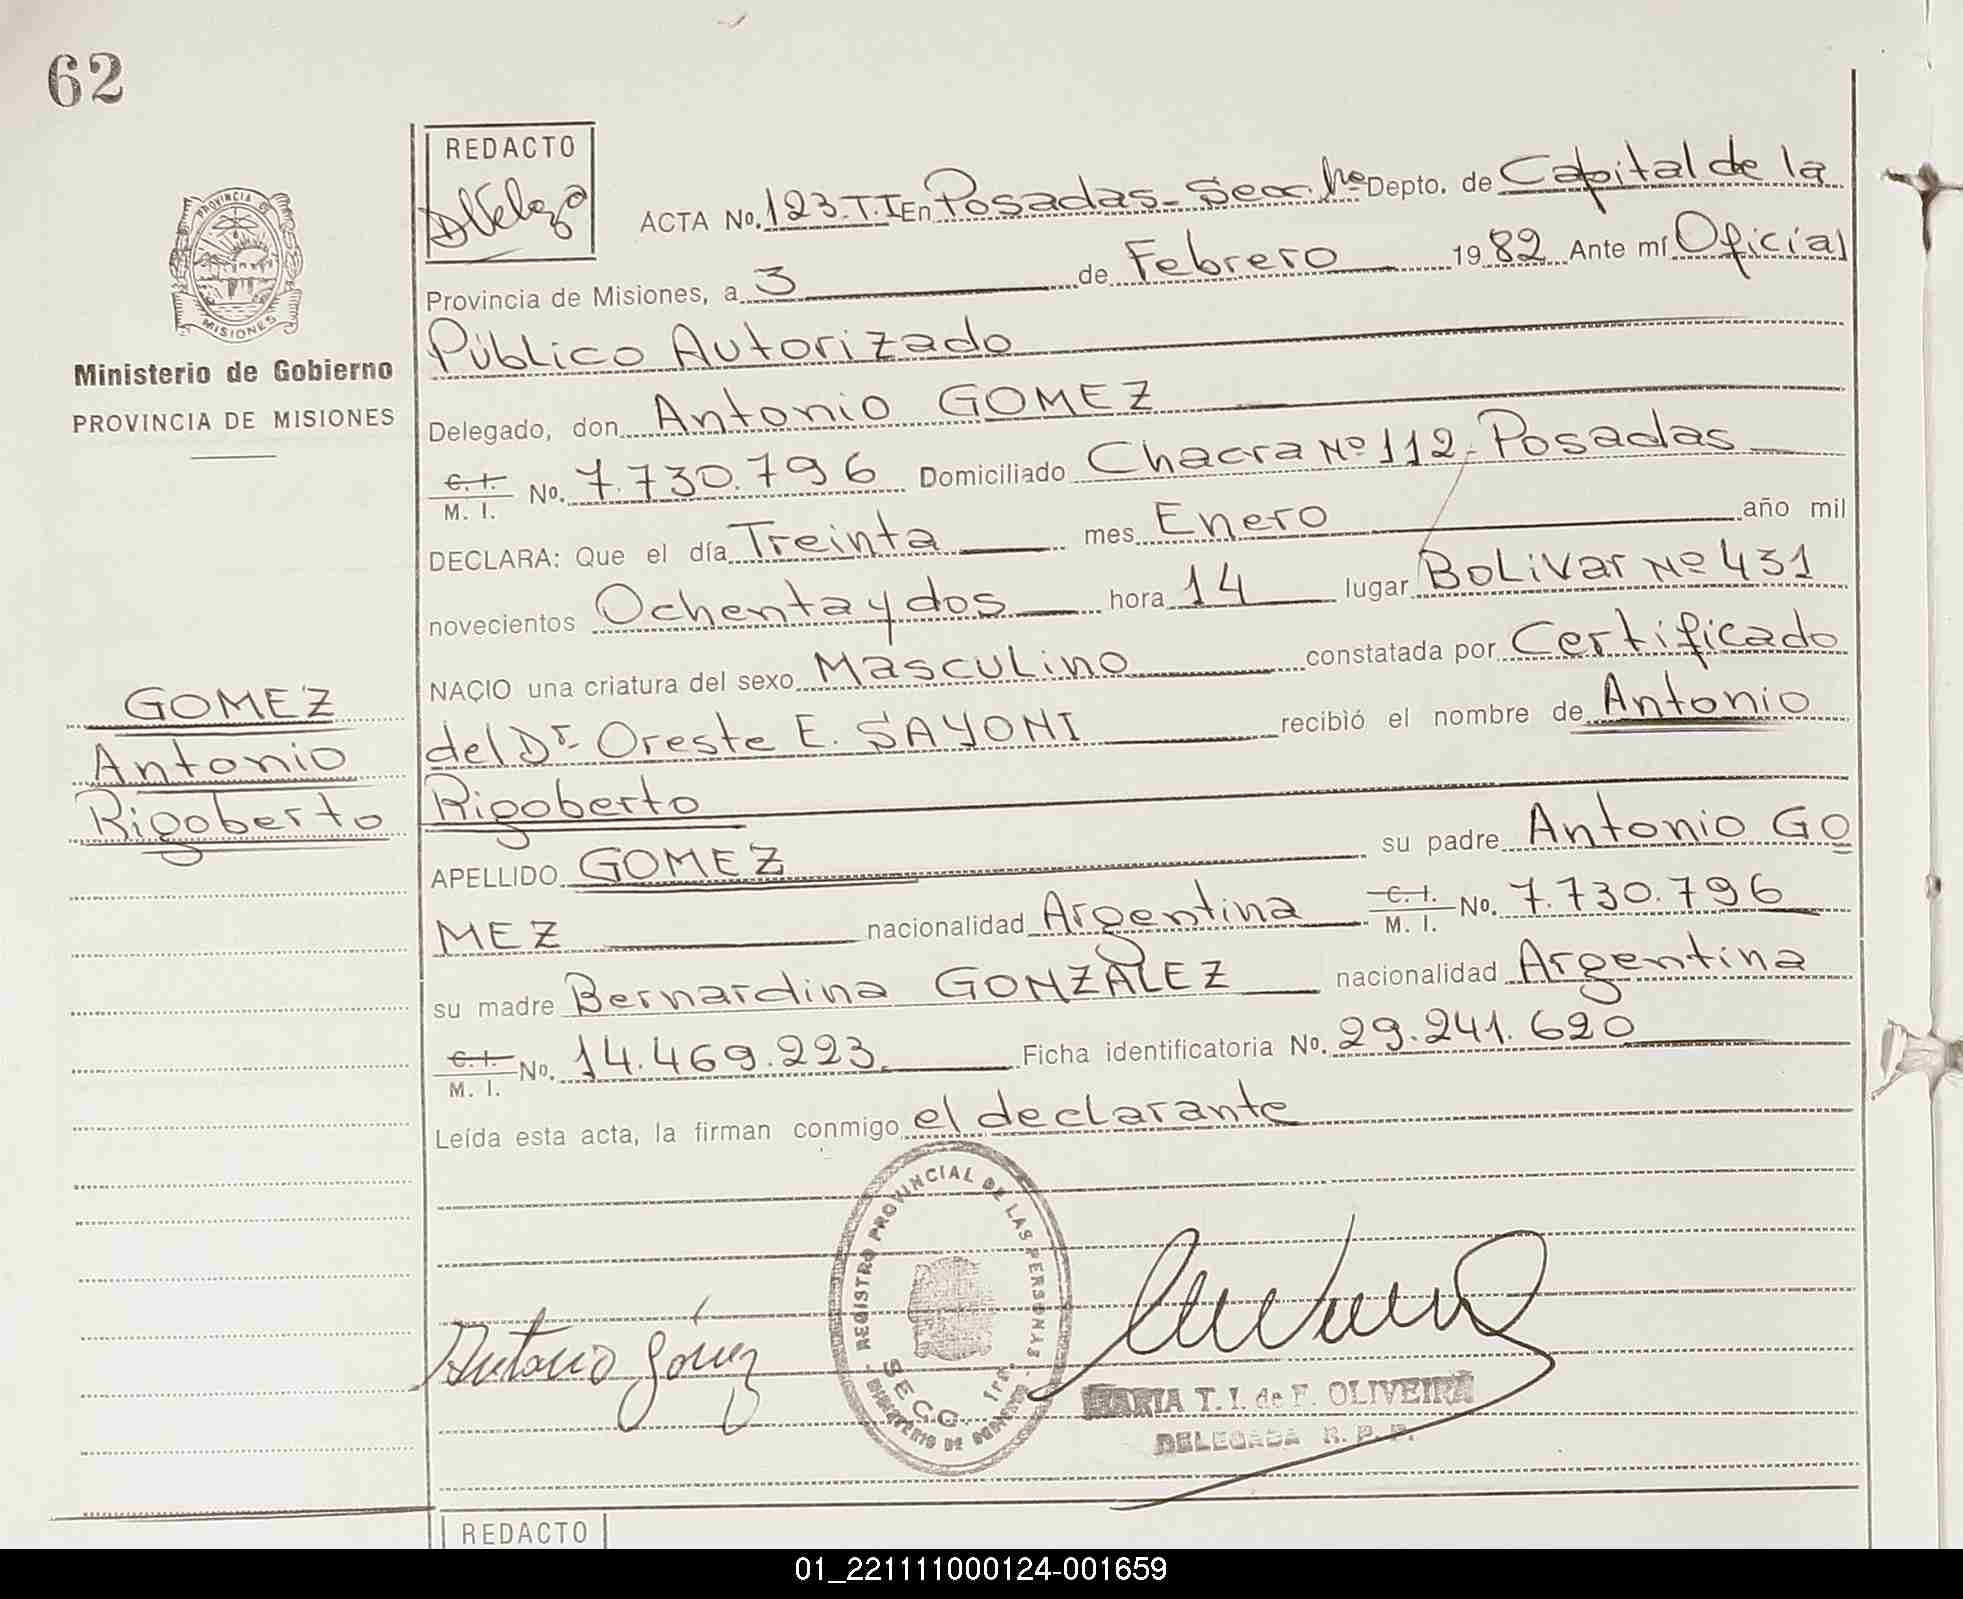 62
REDACTO
ACTA No. 123.T.I En Posadas - Secc. 1ra Depto. de Capital de la
Provincia de Misiones, a 3 de Febrero 1982 Ante mí Oficial
Público Autorizado
Delegado, don Antonio GOMEZ
C. I. M. I. No. 7.730.796 Domiciliado Chacra Nº 112 - Posadas
DECLARA: Que el día Treinta mes Enero año mil
novecientos Ochenta y dos hora 14 lugar Bolivar Nº 431
NACIO una criatura del sexo Masculino constatada por Certificado
del Dr. Oreste E. SAYONI recibió el nombre de Antonio
Rigoberto
APELLIDO GOMEZ su padre Antonio GO
MEZ nacionalidad Argentina C. I. M. I. No. 7.730.796
su madre Bernardina GONZALEZ nacionalidad Argentina
C. I. M. I. No. 14.469.223 Ficha identificatoria No. 29.241.620
Leída esta acta, la firman conmigo el declarante
PROVINCIA DE
MISIONES
Ministerio de Gobierno
PROVINCIA DE MISIONES
GOMEZ
Antonio
Rigoberto
Antonio Gómez
REGISTRO PROVINCIAL DE LAS PERSONAS
SECC. 1ra.
MINISTERIO DE GOBIERNO
MARIA T. I. de F. OLIVEIRA
DELEGADA R. P. P.
REDACTO
01_221111000124-001659